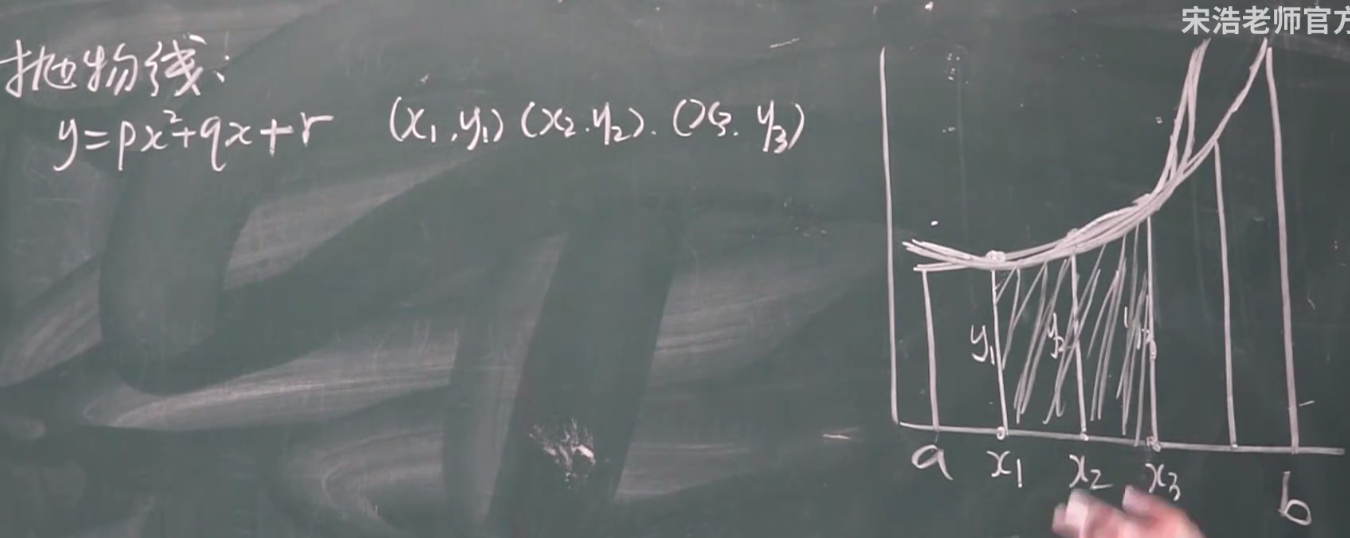 宋浩老师官方
抛物线:
y=px²+qx+r (x₁,y₁) (x₂.y₂). (x₃. y₃)
y₁ y₂ y₃
a x₁ x₂ x₃ b